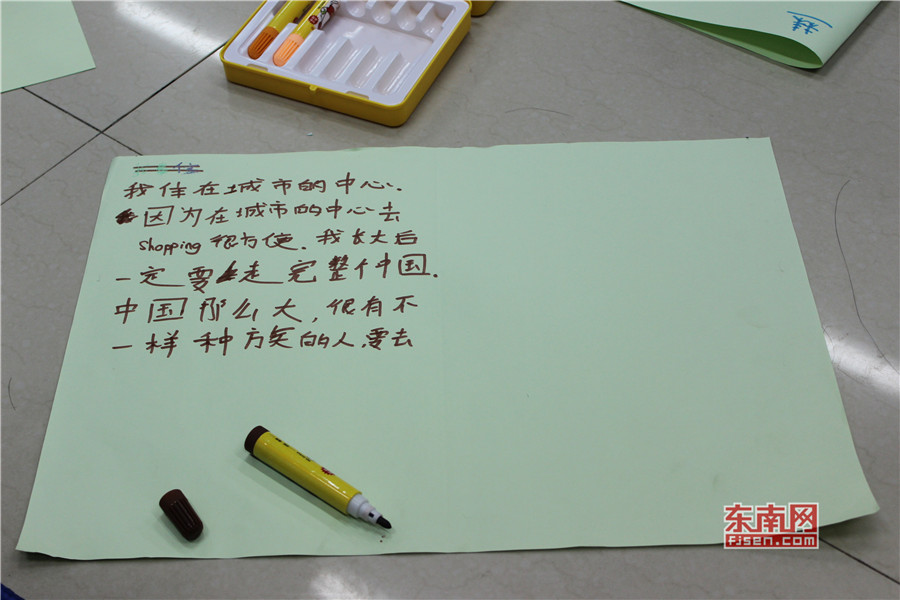 我住在城市的中心.
因为在城市的中心去
shopping 很方便. 我长大后
一定要走完整个中国.
中国那么大, 很有不
一样种族的人,要去
东南网
fjsen.com